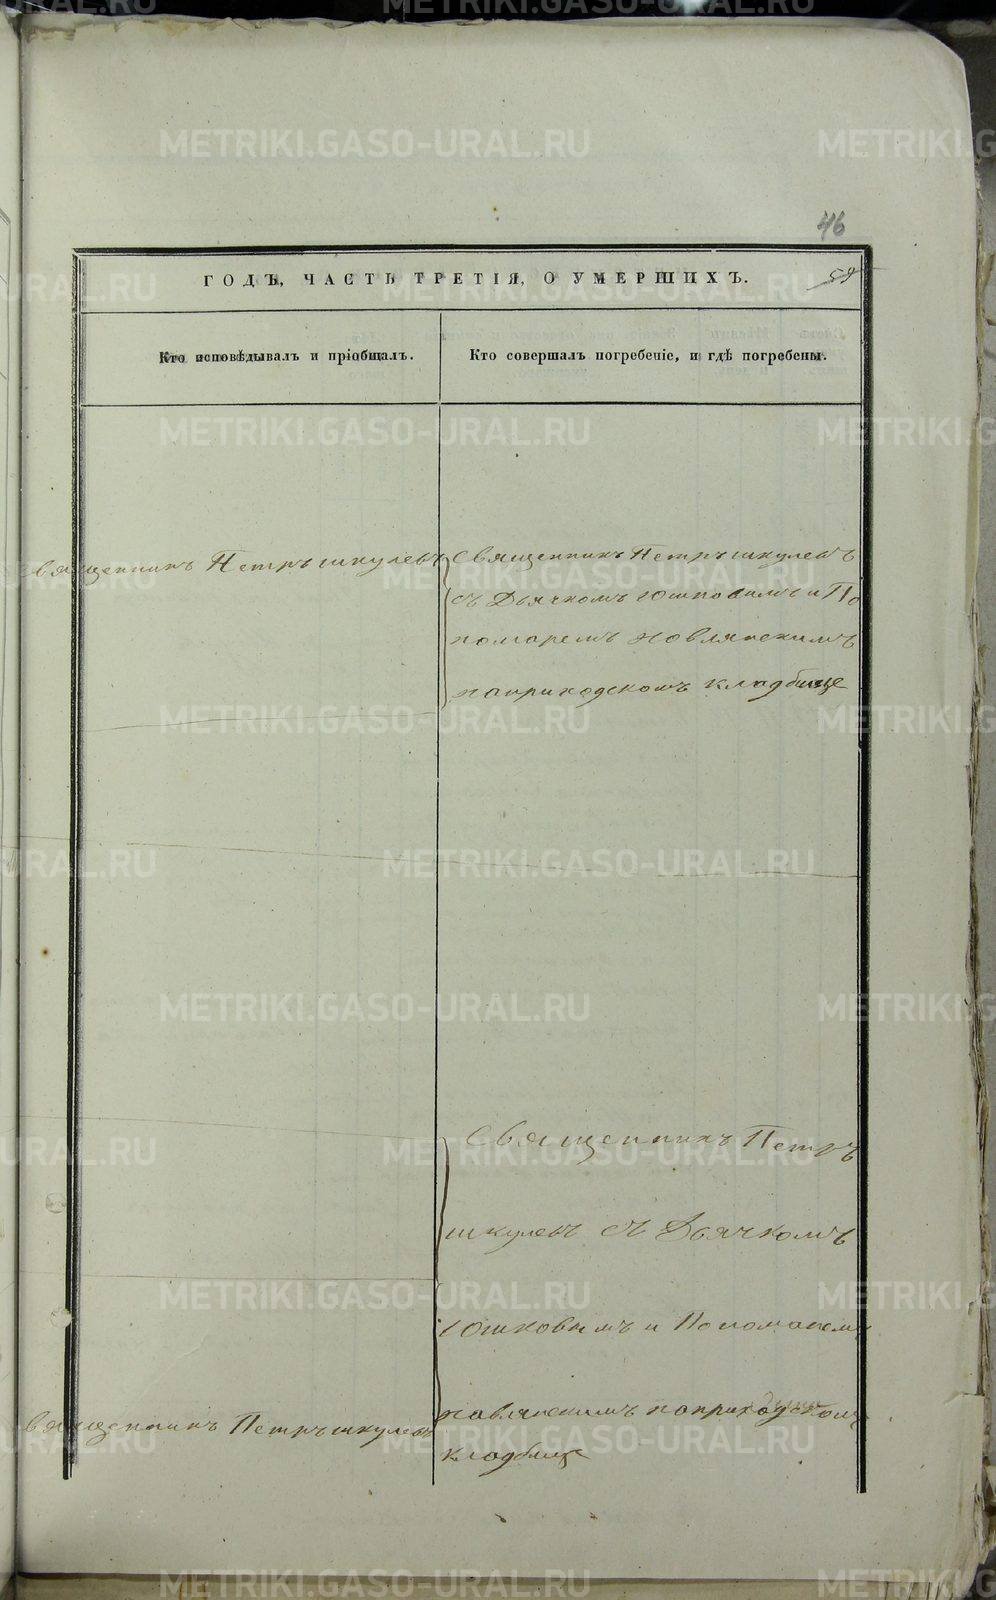 46
59
ГОДЪ, ЧАСТЬ ТРЕТІЯ, О УМЕРШИХЪ.
Кто исповѣдывалъ и пріобщалъ.
Кто совершалъ погребеніе, и гдѣ погребены.
Священникъ Петръ Шкулевъ
Священникъ Петръ Шкулевъ
съ Дьячкомъ Юшковымъ и По
номаремъ Новлянскимъ
наприходскомъ кладбище
Священникъ Петръ
Шкулевъ съ Дьячкомъ
Юшковымъ и Пономаремъ
Новлянскимъ наприходскомъ
кладбище
Священникъ Петръ Шкулевъ
METRIKI.GASO-URAL.RU